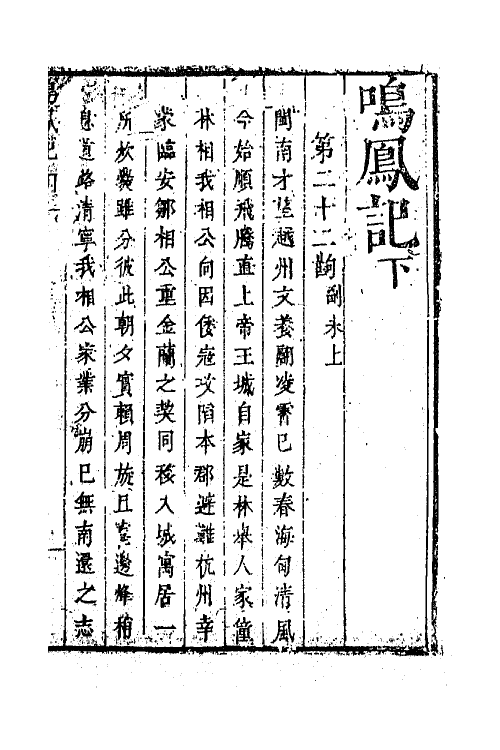 鳴鳳記下
第二十二齣副末上
閩南才望越州文養翮凌霄已數春海甸清風
今始順飛騰直上帝王城自家是林舉人家僮
林相我相公向因倭寇攻陷本郡避難杭州幸
家臨安鄒相公重金蘭之契同移入城寓居一
所炊爨雖分彼此朝夕實賴周旋且喜邊烽稍
息道路清寧我相公家業分崩已無南還之志